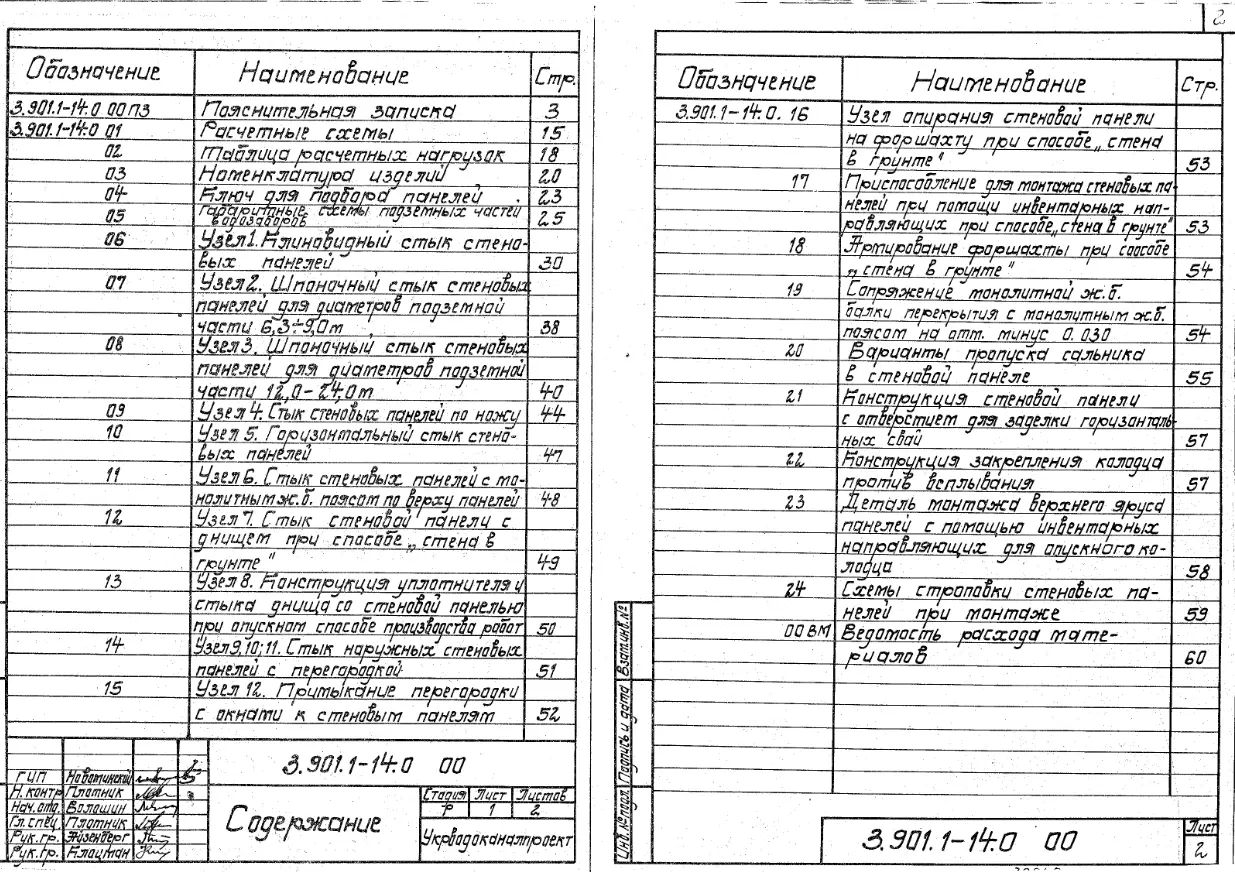 Обозначение Наименование Стр.
3.901.1-14.0 00ПЗ Пояснительная записка 3
3.901.1-14.0 01 Расчетные схемы 15
02 Таблица расчетных нагрузок 18
03 Номенклатура изделий 20
04 Ключ для подбора панелей . 23
05 Габаритные схемы подземных частей 25
водозаборов
06 Узел 1. Клиновидный стык стено-
вых панелей 30
07 Узел 2. Шпоночный стык стеновых
панелей для диаметров подземной
части 6,3÷9,0м 38
08 Узел 3. Шпоночный стык стеновых
панелей для диаметров подземной
части 12,0-24.0м 40
09 Узел 4. Стык стеновых панелей по ножу 44
10 Узел 5. Горизонтальный стык стено-
вых панелей 47
11 Узел 6. Стык стеновых панелей с мо-
нолитным ж.б. поясом по верху панелей 48
12 Узел 7. Стык стеновой панели с
днищем при способе „стена в
грунте" 49
13 Узел 8. Конструкция уплотнителя у
стыка днища со стеновой панелью
при опускном способе производства работ 50
14 Узел 9,10;11. Стык наружных стеновых
панелей с перегородкой 51
15 Узел 12. Примыкание перегородки
с окнами к стеновым панелям 52
3.901.1-14.0 00
ГИП Новоминский
Н.контр Плотник
Нач.отд. Волошин
Гл.спец. Плотник
Рук.гр. Айзенберг
Рук.гр. Клоцман
Содержание
Стадия Лист Листов
Р 1 2
Укрводоканалпроект
2
Обозначение Наименование Стр.
3.901.1-14.0. 16 Узел опирания стеновой панели
на форшахту при способе „стена
в грунте" 53
17 Приспособление для монтажа стеновых па-
нелей при помощи инвентарных нап-
равляющих при способе „стена в грунте" 53
18 Армирование форшахты при способе
„стена в грунте" 54
19 Сопряжение монолитной ж.б.
балки перекрытия с монолитным ж.б.
поясом на отм. минус 0.030 54
20 Варианты пропуска сальника
в стеновой панеле 55
21 Конструкция стеновой панели
с отверстием для заделки горизонталь-
ных свай 57
22 Конструкция закрепления колодца
против всплывания 57
23 Деталь монтажа верхнего яруса
панелей с помощью инвентарных
направляющих для опускного ко-
лодца 58
24 Схемы строповки стеновых па-
нелей при монтаже 59
00ВМ Ведомость расхода мате-
риалов 60
Инв.№подл. Подпись и дата Взам.инв.№
3.901.1-14.0 00
Лист
2